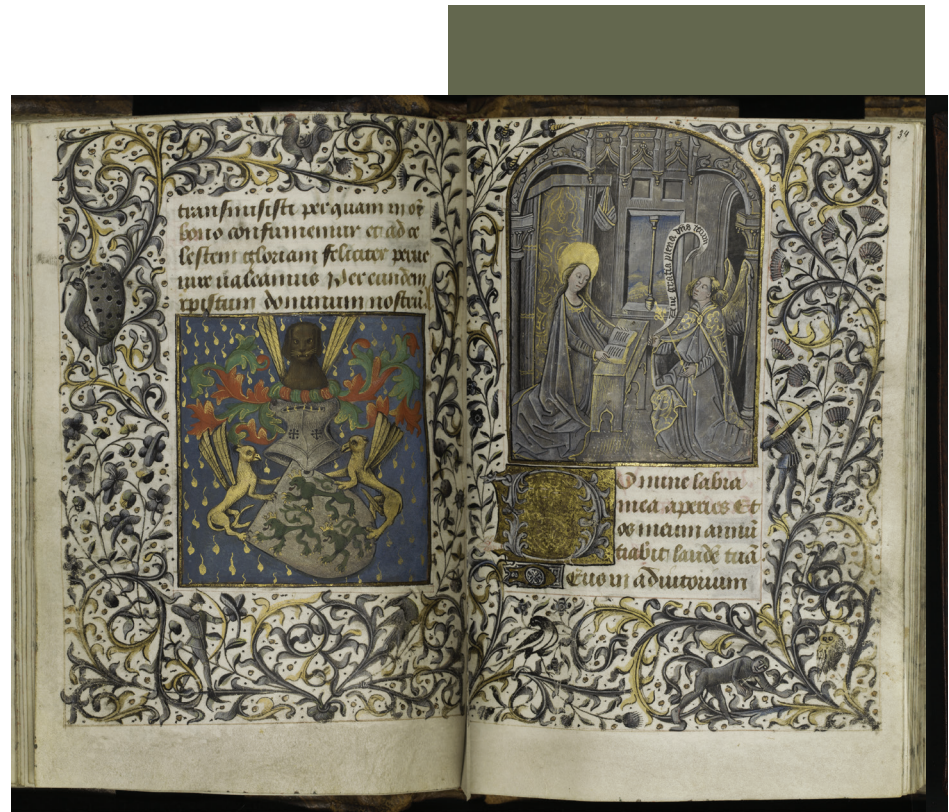 transmisisti per quam mor
boro consumemur et ad ce
lestem gloriam feliciter perue
nire ualeamus Per eundem
xpistum dominum nostrū
34
Aue gratia plena dn̄s tecum
Omine labra
mea aperies Et
os meum annū
tiabit laudē tuā
Eus in adiutorium